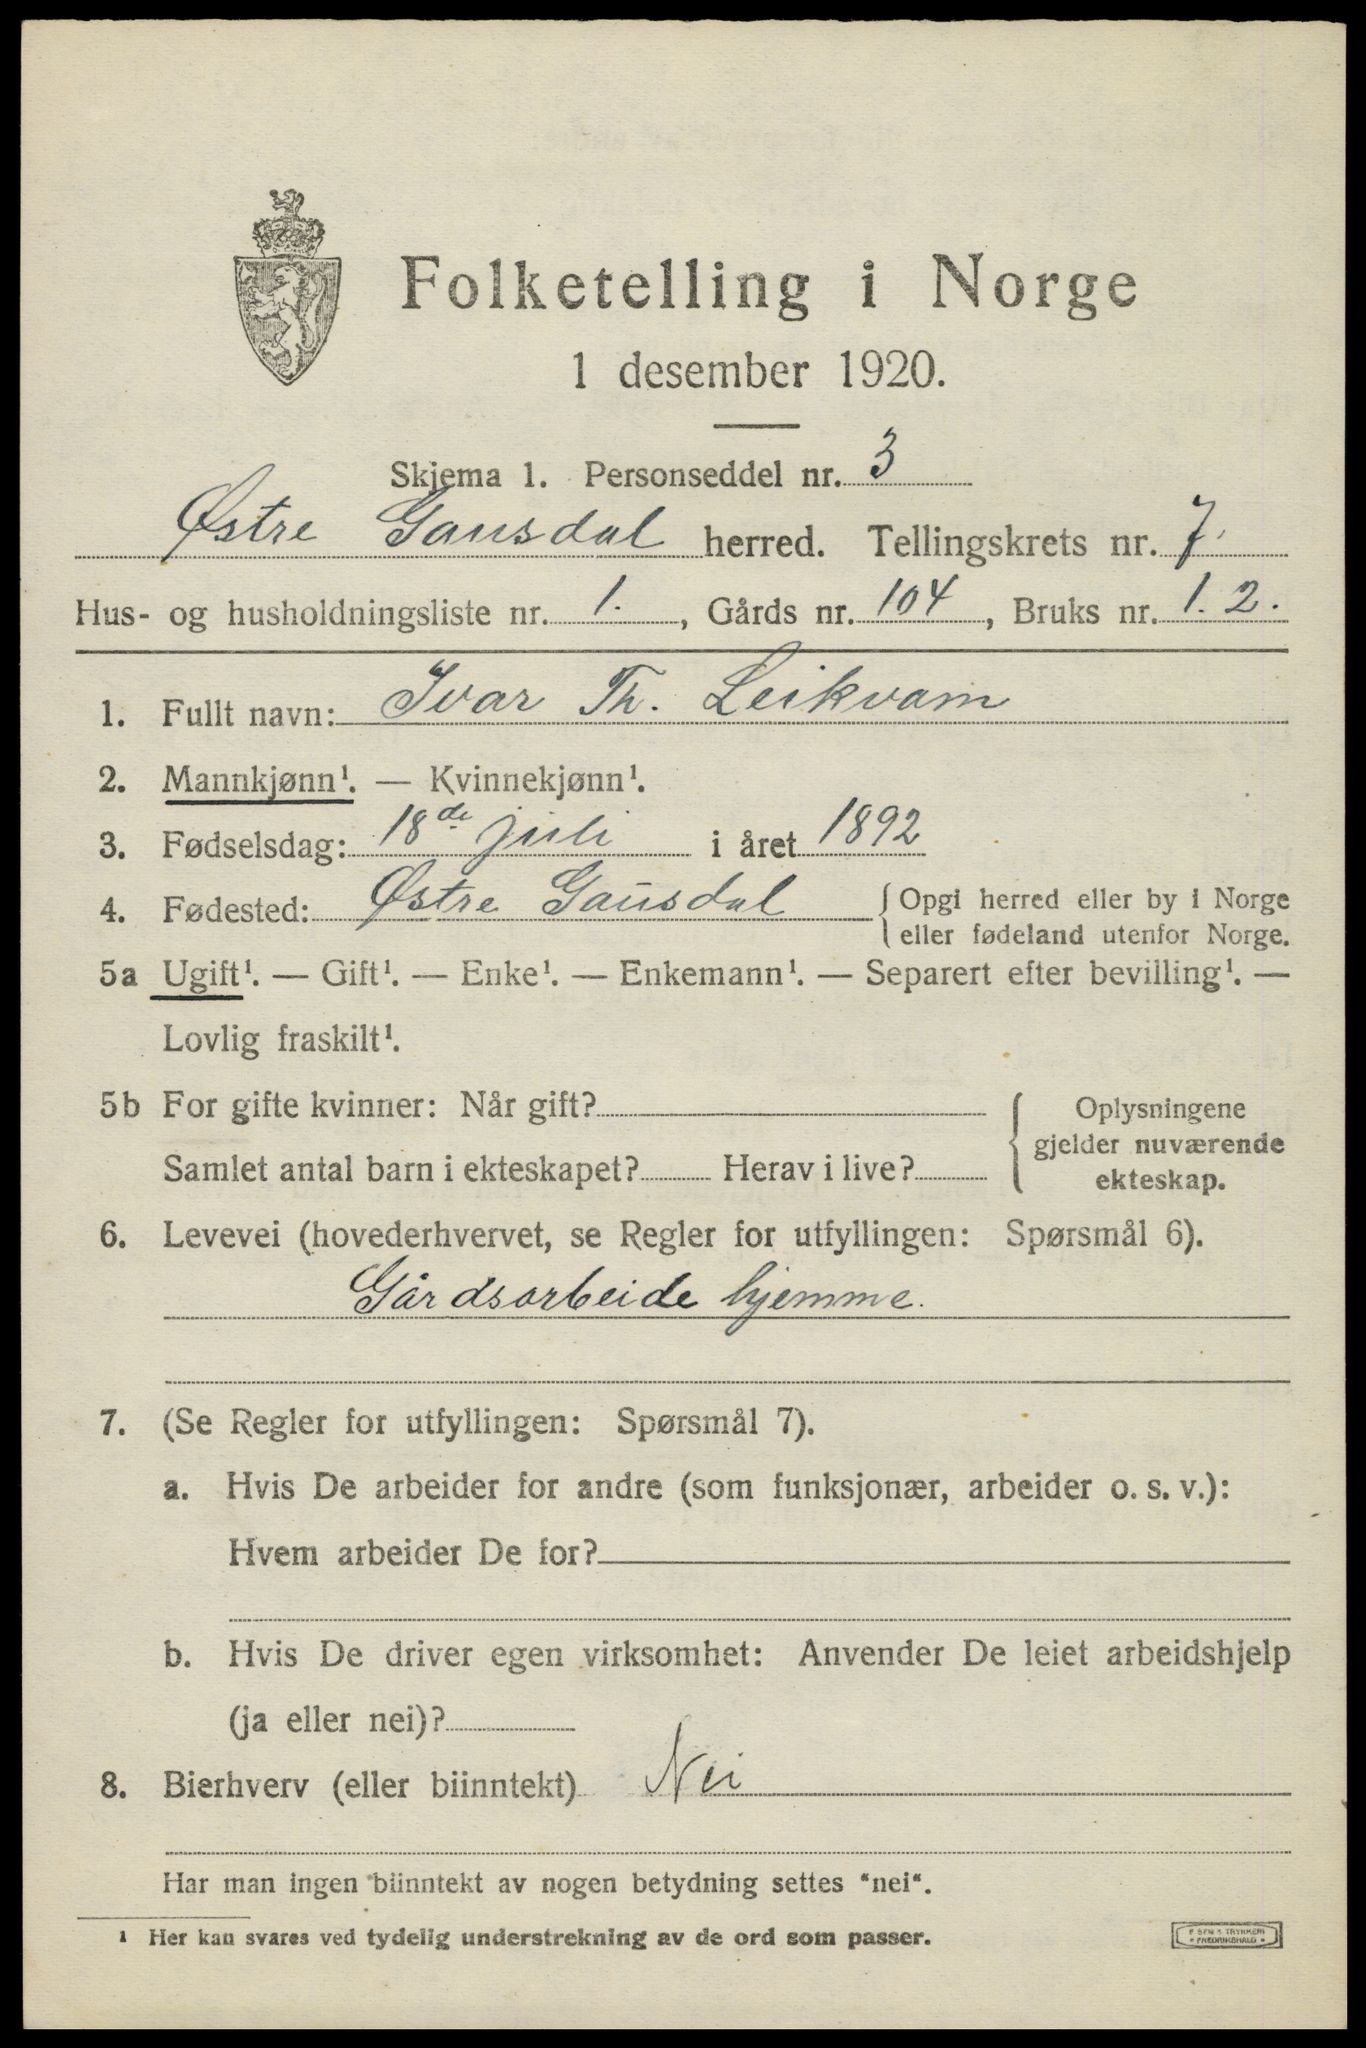 Folketelling i Norge
1 desember 1920.
Skjema 1. Personseddel nr. 3
Østre Gausdal herred. Tellingskrets nr. 7.
Hus- og husholdningsliste nr. 1., Gårds nr. 104, Bruks nr. 1. 2.
1. Fullt navn: Ivar Th. Leikvam
2. Mannkjønn¹. — Kvinnekjønn¹.
3. Fødselsdag: 18de juli i året 1892
4. Fødested: Østre Gausdal { Opgi herred eller by i Norge
eller fødeland utenfor Norge.
5a Ugift¹. — Gift¹. — Enke¹. — Enkemann¹. — Separert efter bevilling¹. —
Lovlig fraskilt¹.
5b For gifte kvinner: Når gift? { Oplysningene
gjelder nuværende
Samlet antal barn i ekteskapet? Herav i live?
ekteskap.
6. Levevei (hovederhvervet, se Regler for utfyllingen: Spørsmål 6).
Gårdsarbeide hjemme.
7. (Se Regler for utfyllingen: Spørsmål 7).
a. Hvis De arbeider for andre (som funksjonær, arbeider o. s. v.):
Hvem arbeider De for?
b. Hvis De driver egen virksomhet: Anvender De leiet arbeidshjelp
(ja eller nei)?
8. Bierhverv (eller biinntekt) Nei
Har man ingen biinntekt av nogen betydning settes "nei".
¹ Her kan svares ved tydelig understrekning av de ord som passer.
TRYKKERI
FREDRIKSHALD